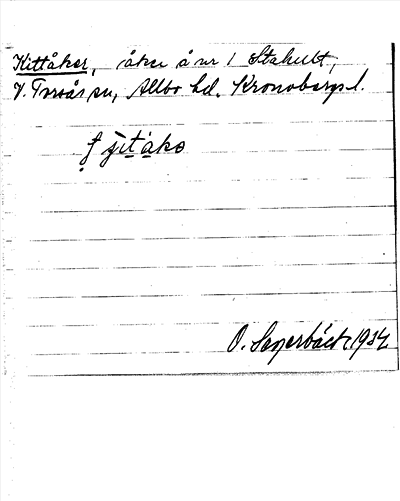 Kittåker, åker å nr 1 Stakult,
V. Torsås sn, Allbo hd. Kronobergs l.
O. Segerbäck 1934